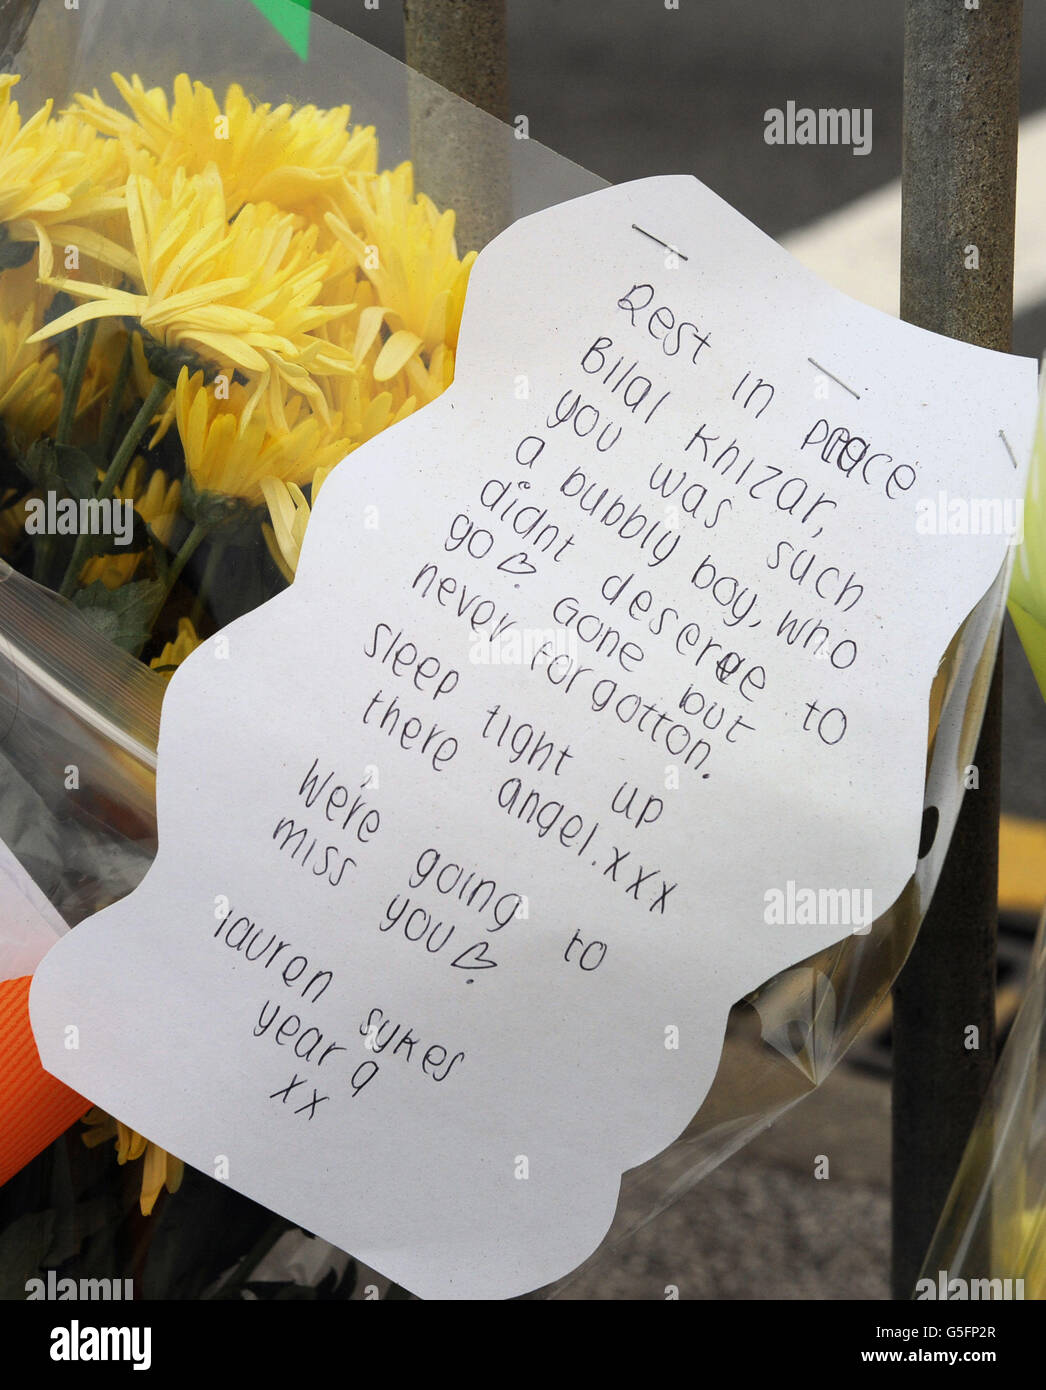 Rest in peace
Bilal Khizar,
you was such
a bubbly boy, who
didnt deserve to
go♡. Gone but
never forgotton.
sleep tight up
there angel.xxx
We're going to
miss you♡.
lauren sykes
year 9
xx
alamy
alamy
a
a
a
a
a
a
a
a
a
a
a
alamy
alamy
alamy
alamy
alamy
alamy
Image ID: G5FP2R
www.alamy.com